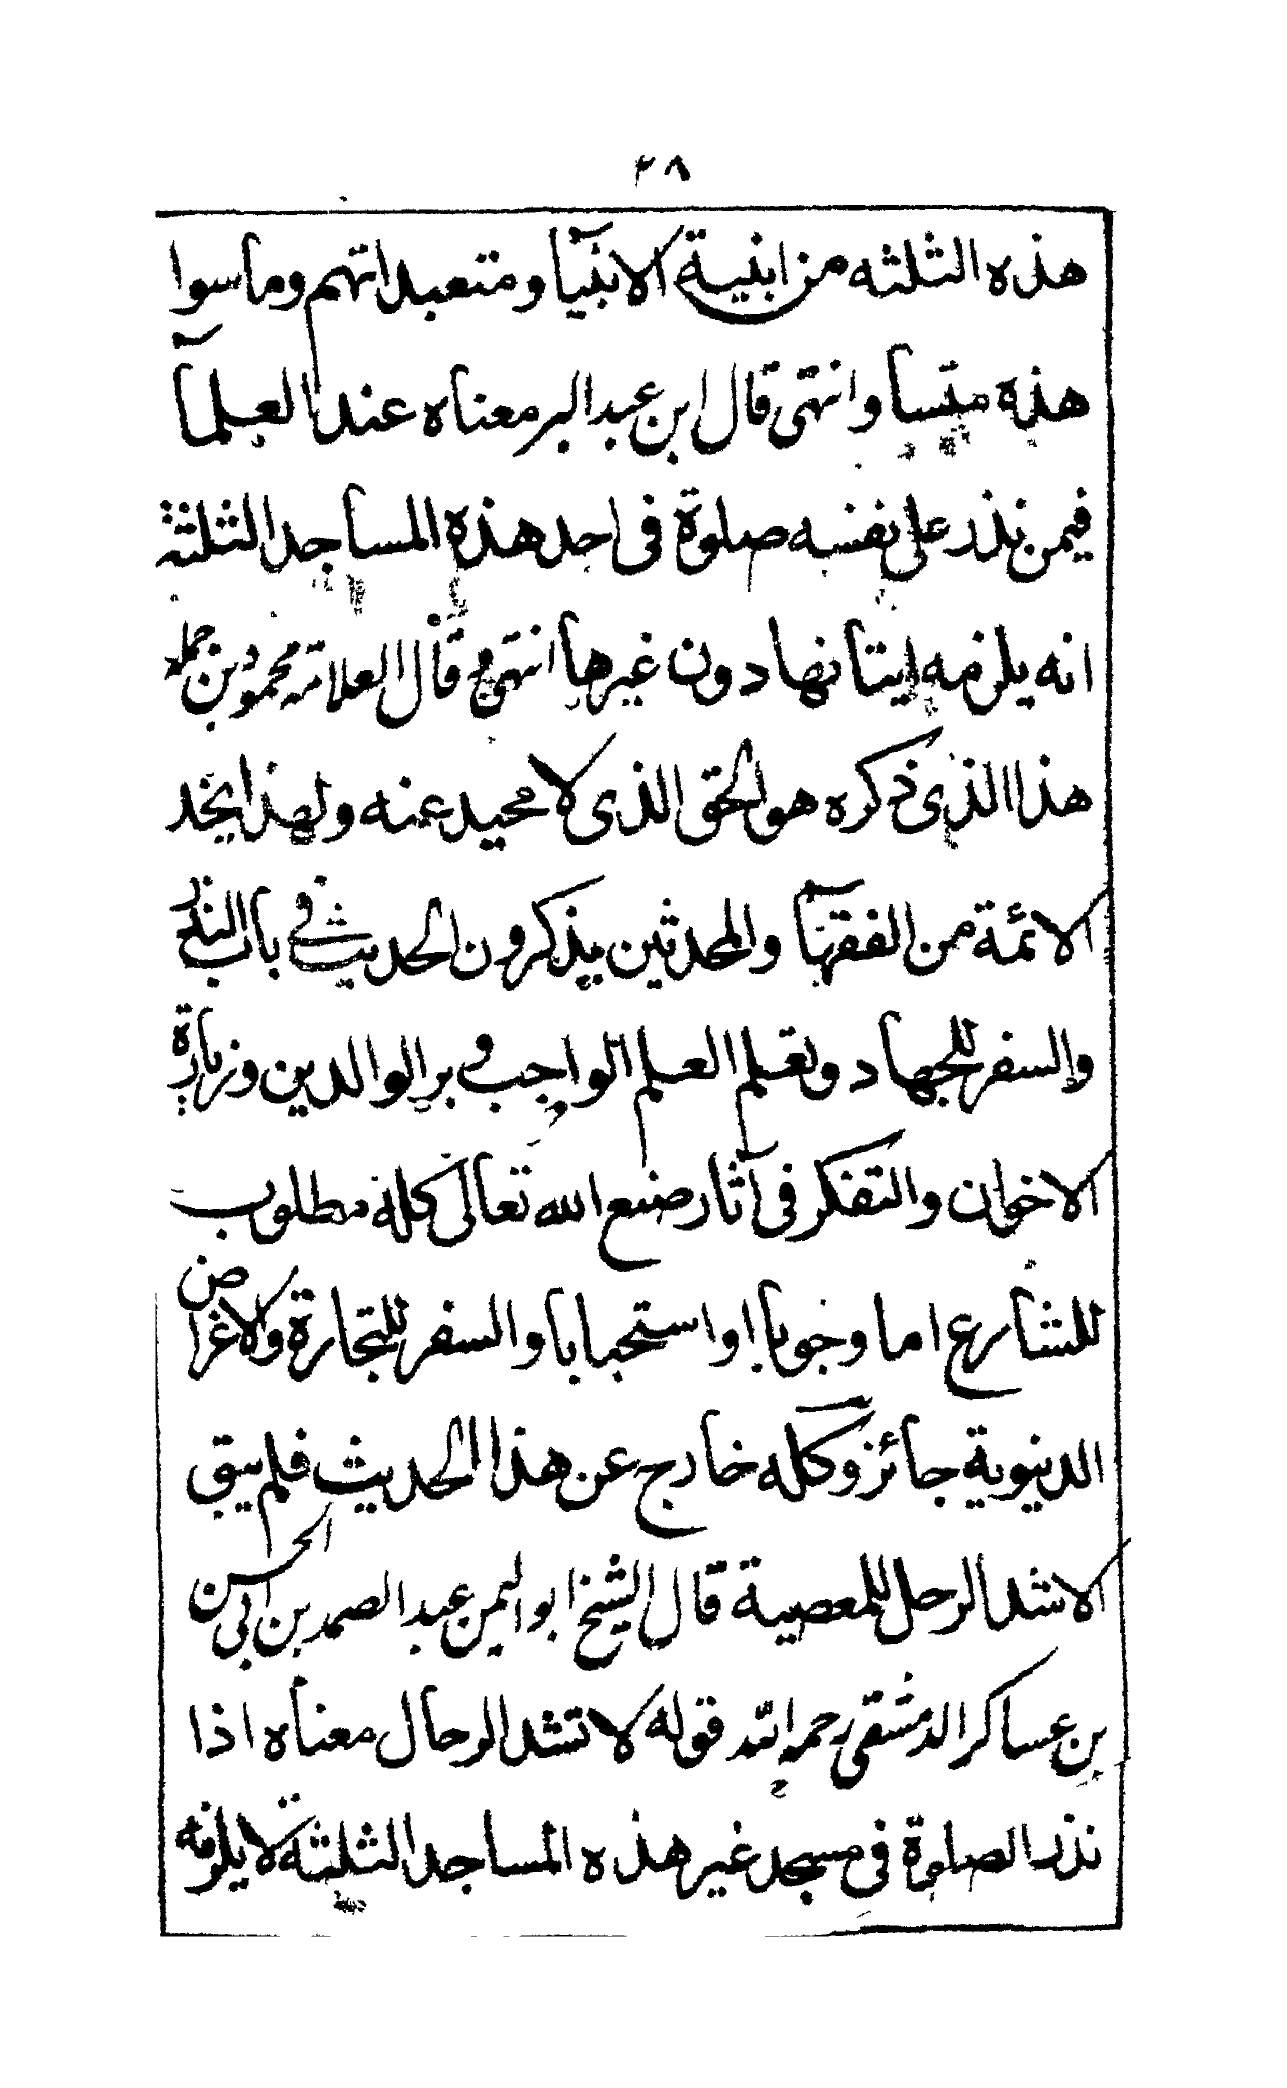 ٢٨
هذه الثلثه من ابنية الانبيآ ومتعبداتهم وما سوا
هذه متسا وانتهى قال ابن عبد البر معناه عند العلمآ
فيمن نذر على نفسه صلوة فى احد هذه المساجد الثلثة
انه يلزمه ايتانها دون غيرها انتهى وقال العلامة محمود بن جمله
هذا الذى ذكره هو الحق الذى لا محيد عنه ولهذا يجد
الائمة من الفقهآ والمحدثين يذكرون الحديث فى باب النذر
والسفر للجهاد وتعلم العلم الواجب وبر الوالدين وزيارة
الاخوان والتفكر فى آثار صنع الله تعالى كله مطلوب
للشارع اما وجوبا او استحبابا والسفر للتجارة والاغراض
الدينوية جائز وكله خارج عن هذا الحديث فلم يبق
الا شد الرحل للمعصية قال الشيخ ابو اليمن عبد الصمد بن ابى الحسن
بن عساكر الدمشقى رحمه الله قوله لا تشد الرحال معناه اذا
نذر الصلوة فى مسجد غير هذه المساجد الثلثة لا يلزمه